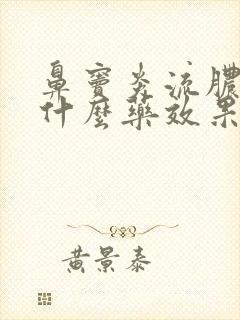 鼻窦炎流膿
什麼藥效果
黄景泰